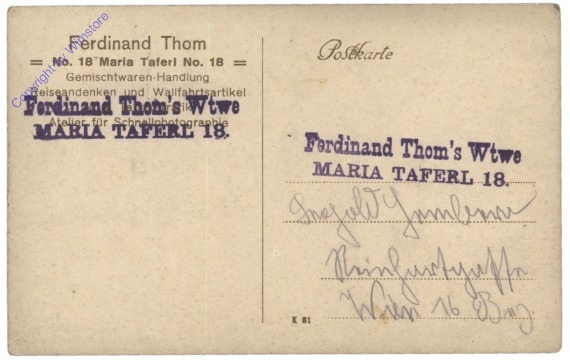 Ferdinand Thom
No. 18 Maria Taferl No. 18
Gemischtwaren-Handlung
Reiseandenken und Wallfahrtsartikel
Ferdinand Thom's Wtwe
Atelier für Schnellphotographie
MARIA TAFERL 18.
Copyright by Whnstore
Postkarte
Ferdinand Thom's Wtwe
MARIA TAFERL 18.
Leopold
Wien 16 Bez.
K 81